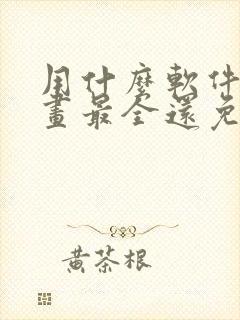 用什麼軟件
畫最全還免
黃茶根